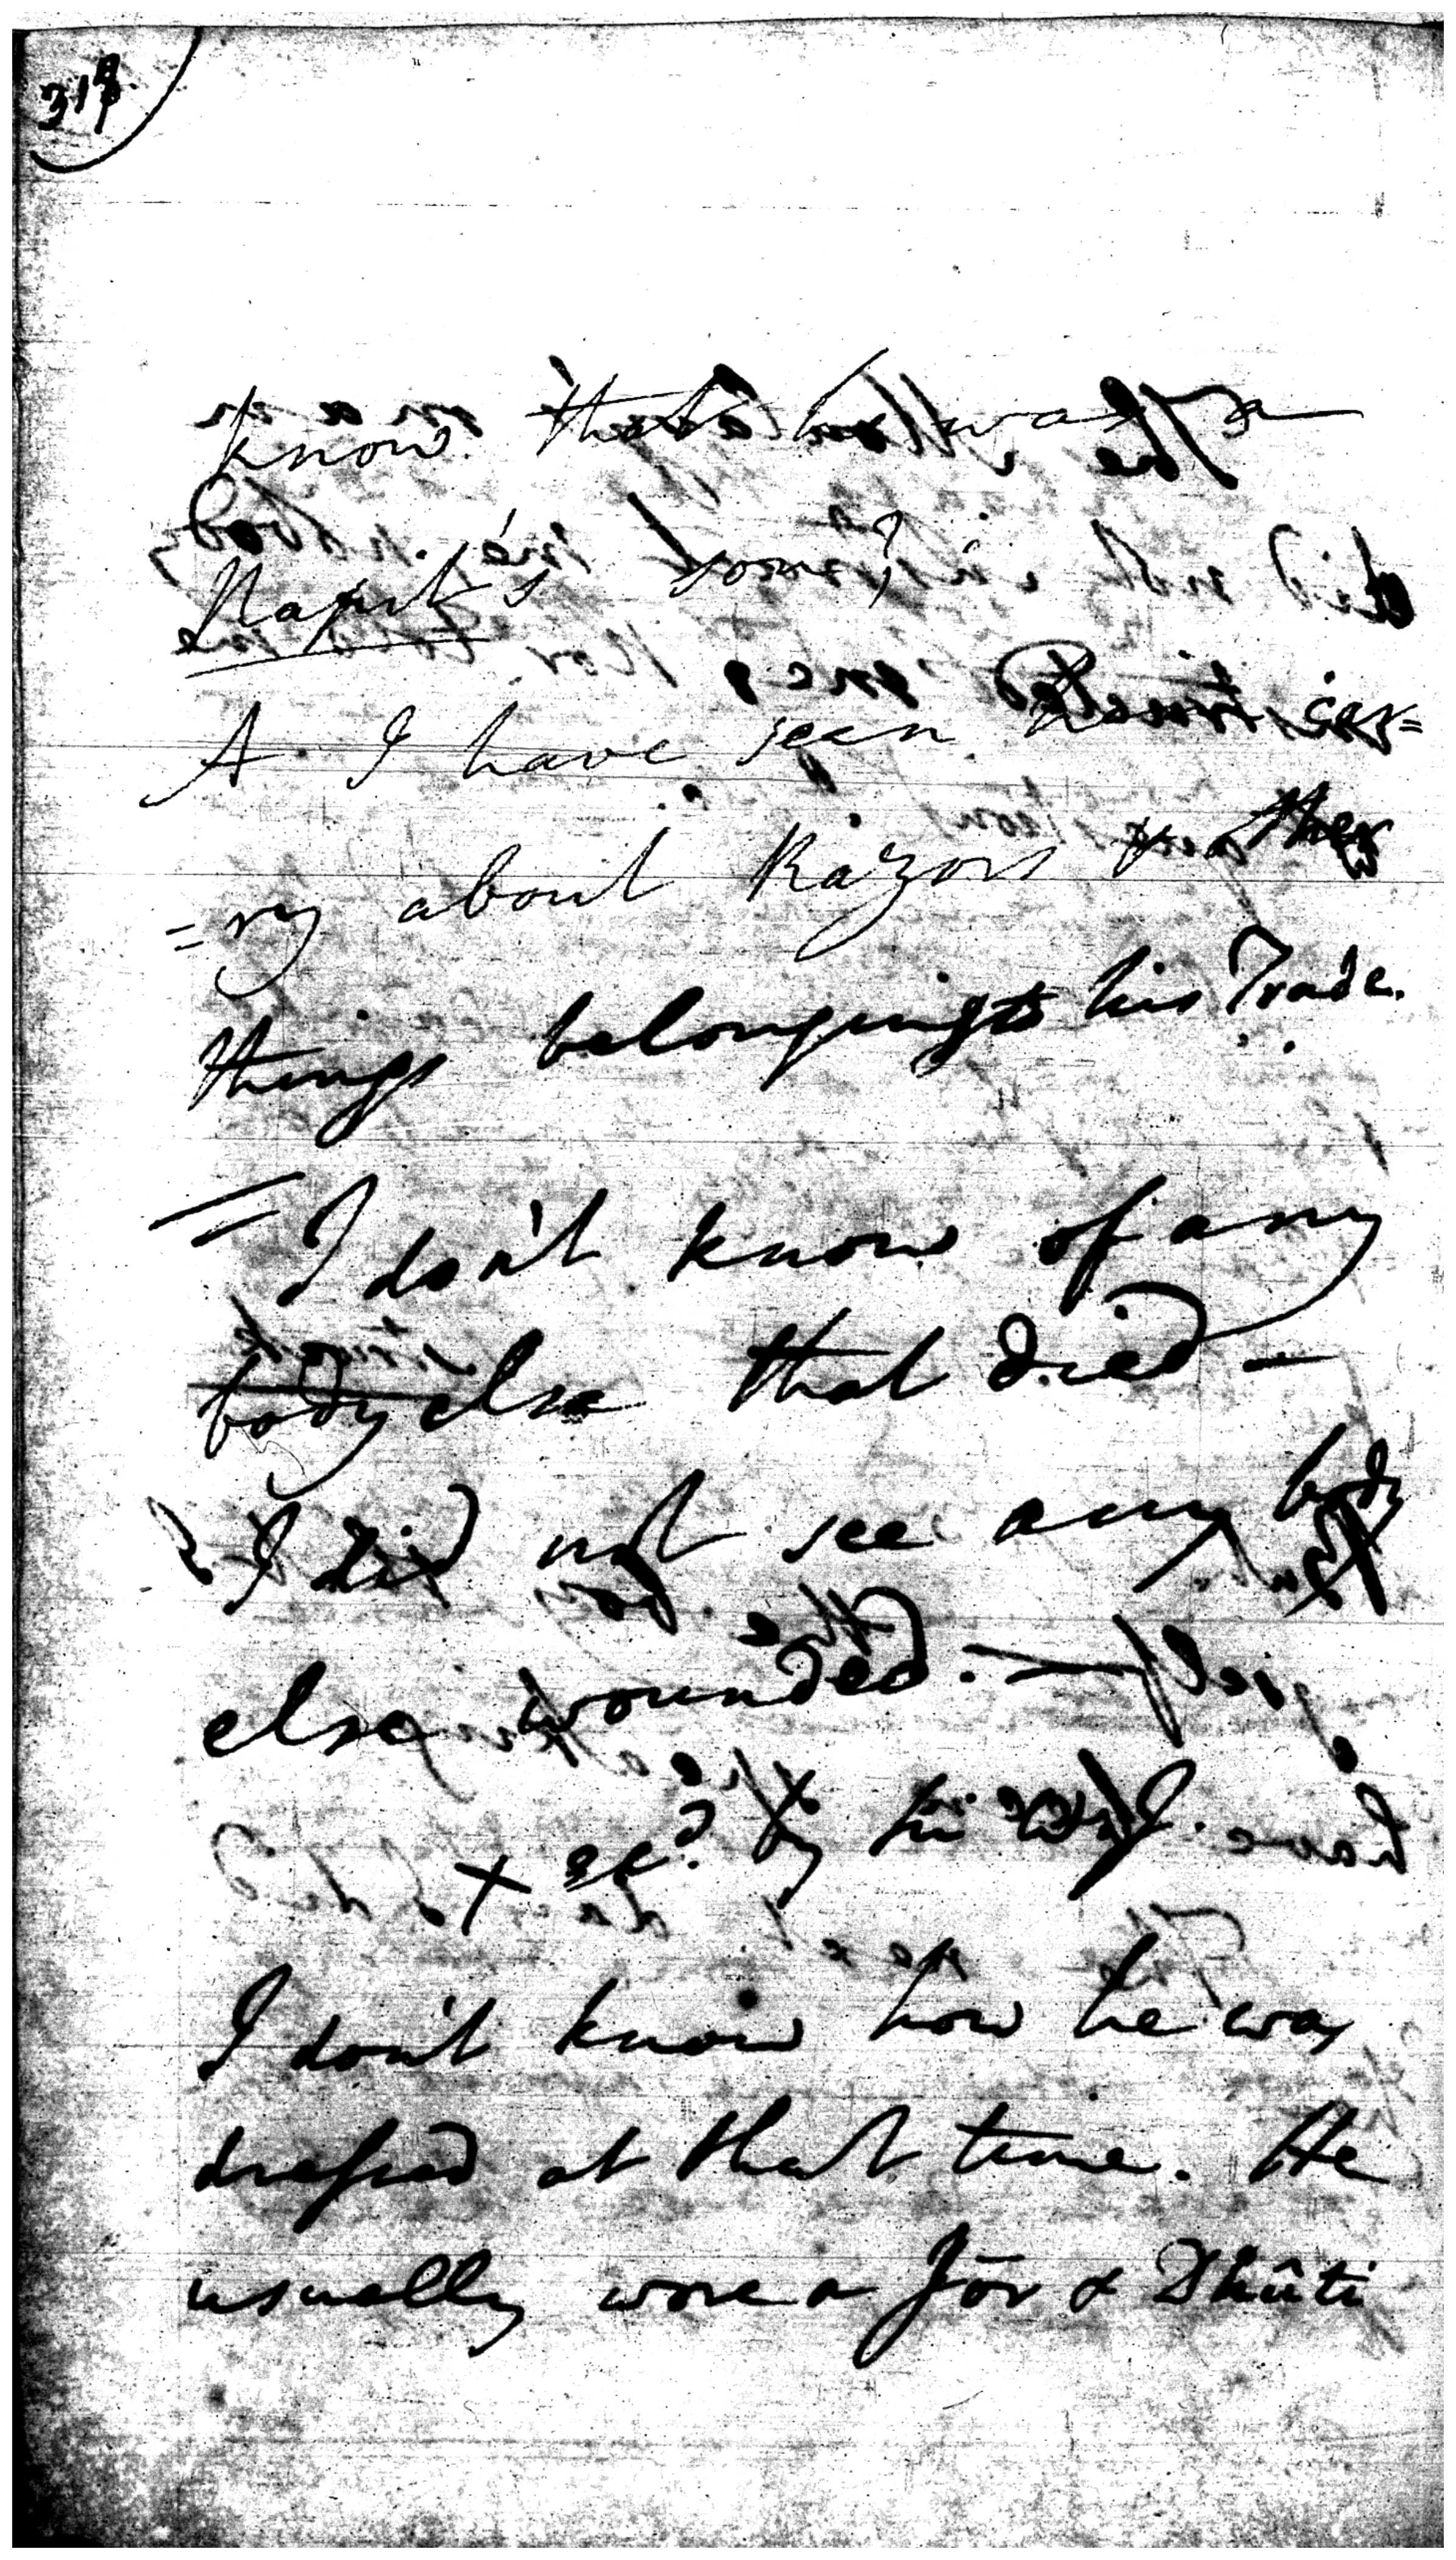 know that he was a
Napit's son?
A. I have seen him car=
=ry about Razors & other
things belonging to his Trade.
= I don't know of any
body else that died —
I did not see any body
else wounded. —
X ed. by the
I don't know how he was
dressed at that time. He
usually wore a Jōr & Dhûti